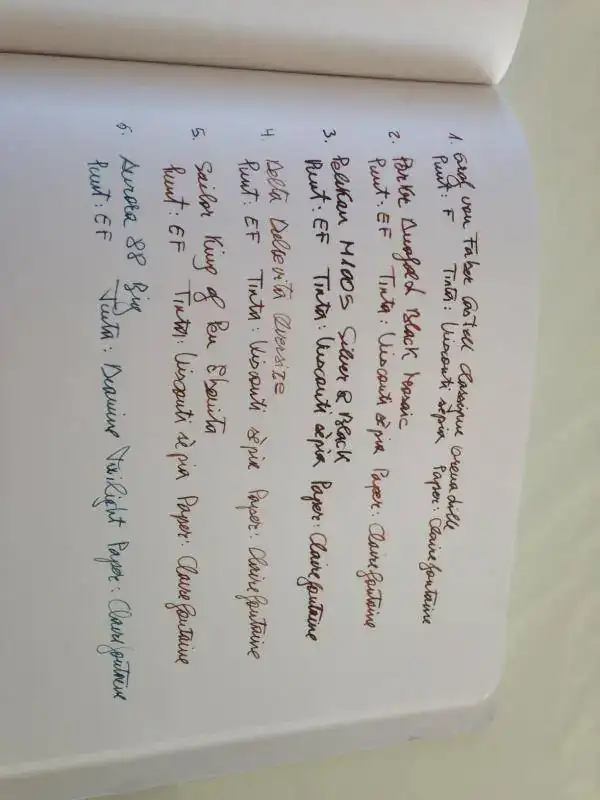 1. Graf von Faber Castell Classique Grenadille
Punt: F Tinta: Visconti sèpia Paper: Clairefontaine
2. Parker Duofold Black Mosaic
Punt: EF Tinta: Visconti sèpia Paper: Clairefontaine
3. Pelikan M1005 Silver & Black
Punt: EF Tinta: Visconti sèpia Paper: Clairefontaine
4. Delta Dolcevita Oversize
Punt: EF Tinta: Visconti sèpia Paper: Clairefontaine
5. Sailor King of Pen Ebonita
Punt: EF Tinta: Visconti sèpia Paper: Clairefontaine
6. Aurora 88 Big
Punt: EF Tinta: Diamine Twilight Paper: Clairefontaine